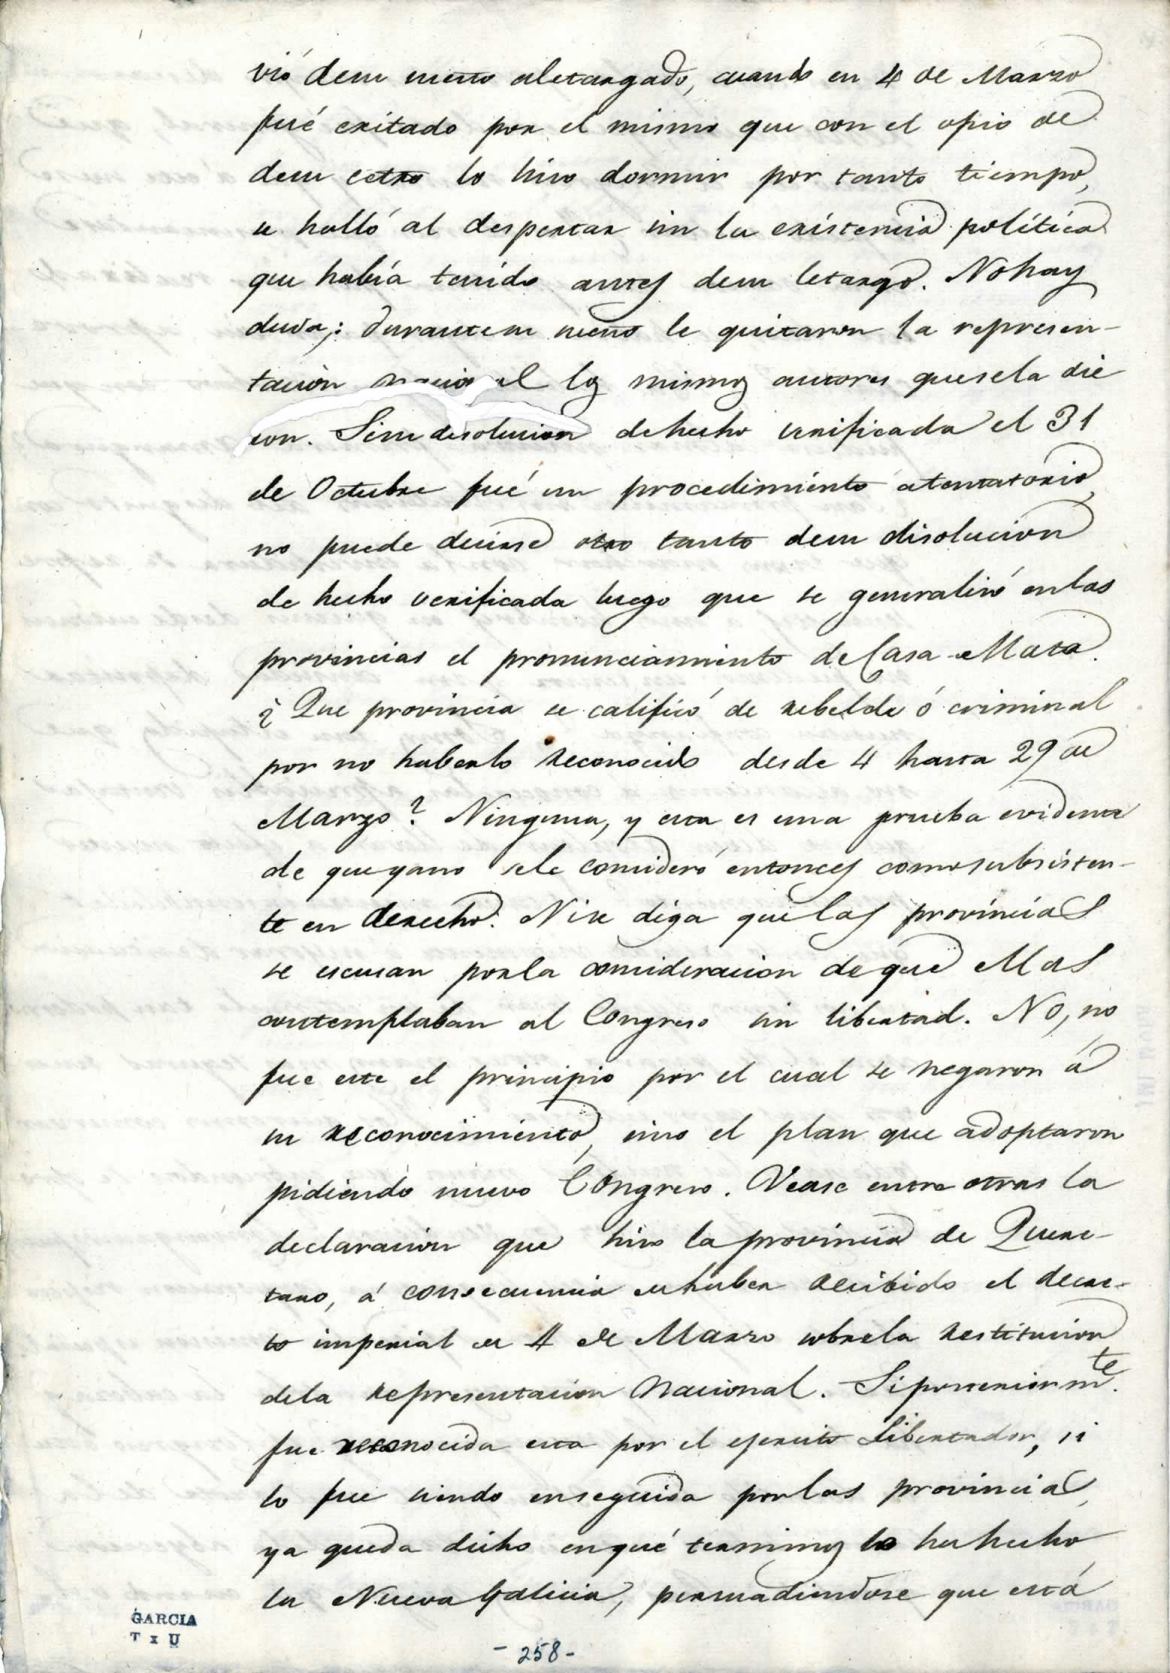 vió de su sueño aletargado, cuando en 4 de Marzo
fué exitado por el mismo que con el opio de
de su cetro lo hizo dormir por tanto tiempo,
se halló al despertar sin la existencia política
que había tenido antes de su letargo. No hay
duda,: durante su sueño le quitaron la represen-
tación nacional los mismos autores que se la die
ron. Si su disolucion de hecho verificada el 31
de Octubre fué un procedimiento atentatorio,
no puede decirse otro tanto de su disolucion
de hecho verificada luego que se generalizó en las
provincias el pronunciamiento de Casa-Mata.
¿ Que provincia se calificó de rebelde ó criminal
por no haberlo reconocido desde 4 hasta 29 de
Marzo? Ninguna, y esta es una prueba evidente
de que ya no se le consideró entonces como subsisten-
te en derecho. Ni se diga que las provincias
se escusan por la consideracion de que ellas
contemplaban al Congreso sin libertad. No, no
fue este el principio por el cual se negaron á
su reconocimiento, sino el plan que adoptaron
pidiendo nuevo Congreso. Vease entre otras la
declaracion que hizo la provincia de Quere-
taro, á consecuencia de haber recibido el decre-
to imperial de 4 de Marzo sobre la restitucion
de la representacion Nacional. Si posteriormte.
fue reconocida esta por el ejercito Libertador, si
lo fue siendo enseguida por las provincias,
ya queda dicho en qué terminos lo ha hecho
la Nueva Galicia, persuadiendose que está
GARCIA
T x U
- 258 -